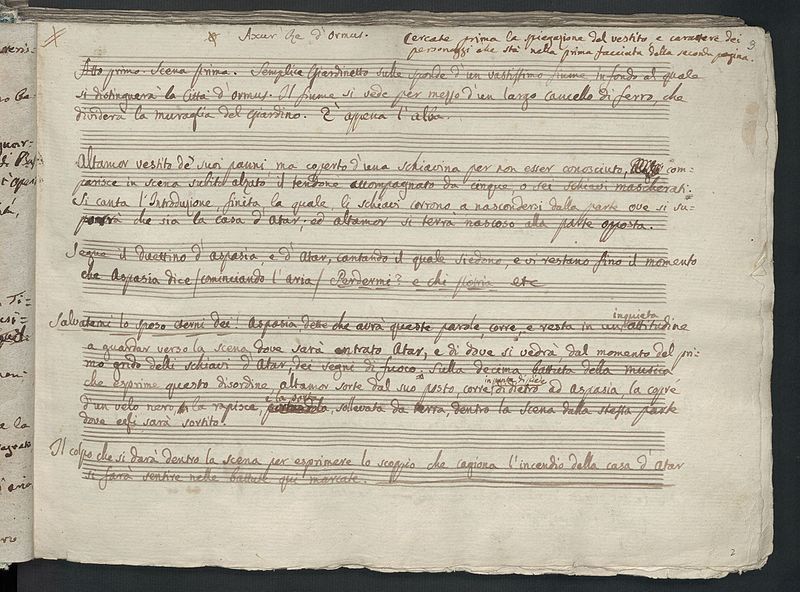 Axur Re d'Ormus.
Cercate prima la spiegazione del vestito e carattere dei
personaggi che stà nella prima facciata della seconda pagina.
3
Atto primo. Scena prima. Semplice Giardinetto sulle sponde d'un vastissimo fiume in fondo al quale
si distinguerà la Città d'Ormus. Il fiume si vede per mezzo d'un largo Cancello di ferro, che
dividerà la muraglia del Giardino. È appena l'alba.
Altamor vestito de' suoi panni ma coperto d'una schiavina per non esser conosciuto, com-
parisce in scena subito alzato il tendone accompagnato da cinque, o sei schiavi mascherati.
Si canta l'Introduzione, finita la quale li schiavi corrono a nascondersi dalla parte ove si su-
porrà che sia la casa d'Atar, ed altamor si terrà nascoso alla parte opposta.
Segue il Duettino d'aspasia, e d'Atar, cantando il quale siedono, e vi restano fino il momento
che Aspasia dice (cominciando l'aria) Perdermi? e chi potria etc
Salvatemi lo sposo eterni dei! Aspasia dette che avrà queste parole, corre, e resta in un'attitudine
inquieta
a guardar verso la scena dove sarà entrato Atar, e di dove si vedrà dal momento del pri-
mo grido delli schiavi d'Atar, dei segni di fuoco. Sulla decima battuta della musica
che esprime questo disordine, altamor sorte dal suo posto, corre di dietro ad aspasia, la copre
in punta di piede
d'un velo nero, la rapisce, e la porta sollevata da terra, dentro la scena dalla stessa parte
dove essi sarà sortito.
Il colpo che si darà dentro la scena per esprimere lo scoppio che cagiona l'incendio della casa d'Atar
si farà sentire nelle battute qui marcate.
2